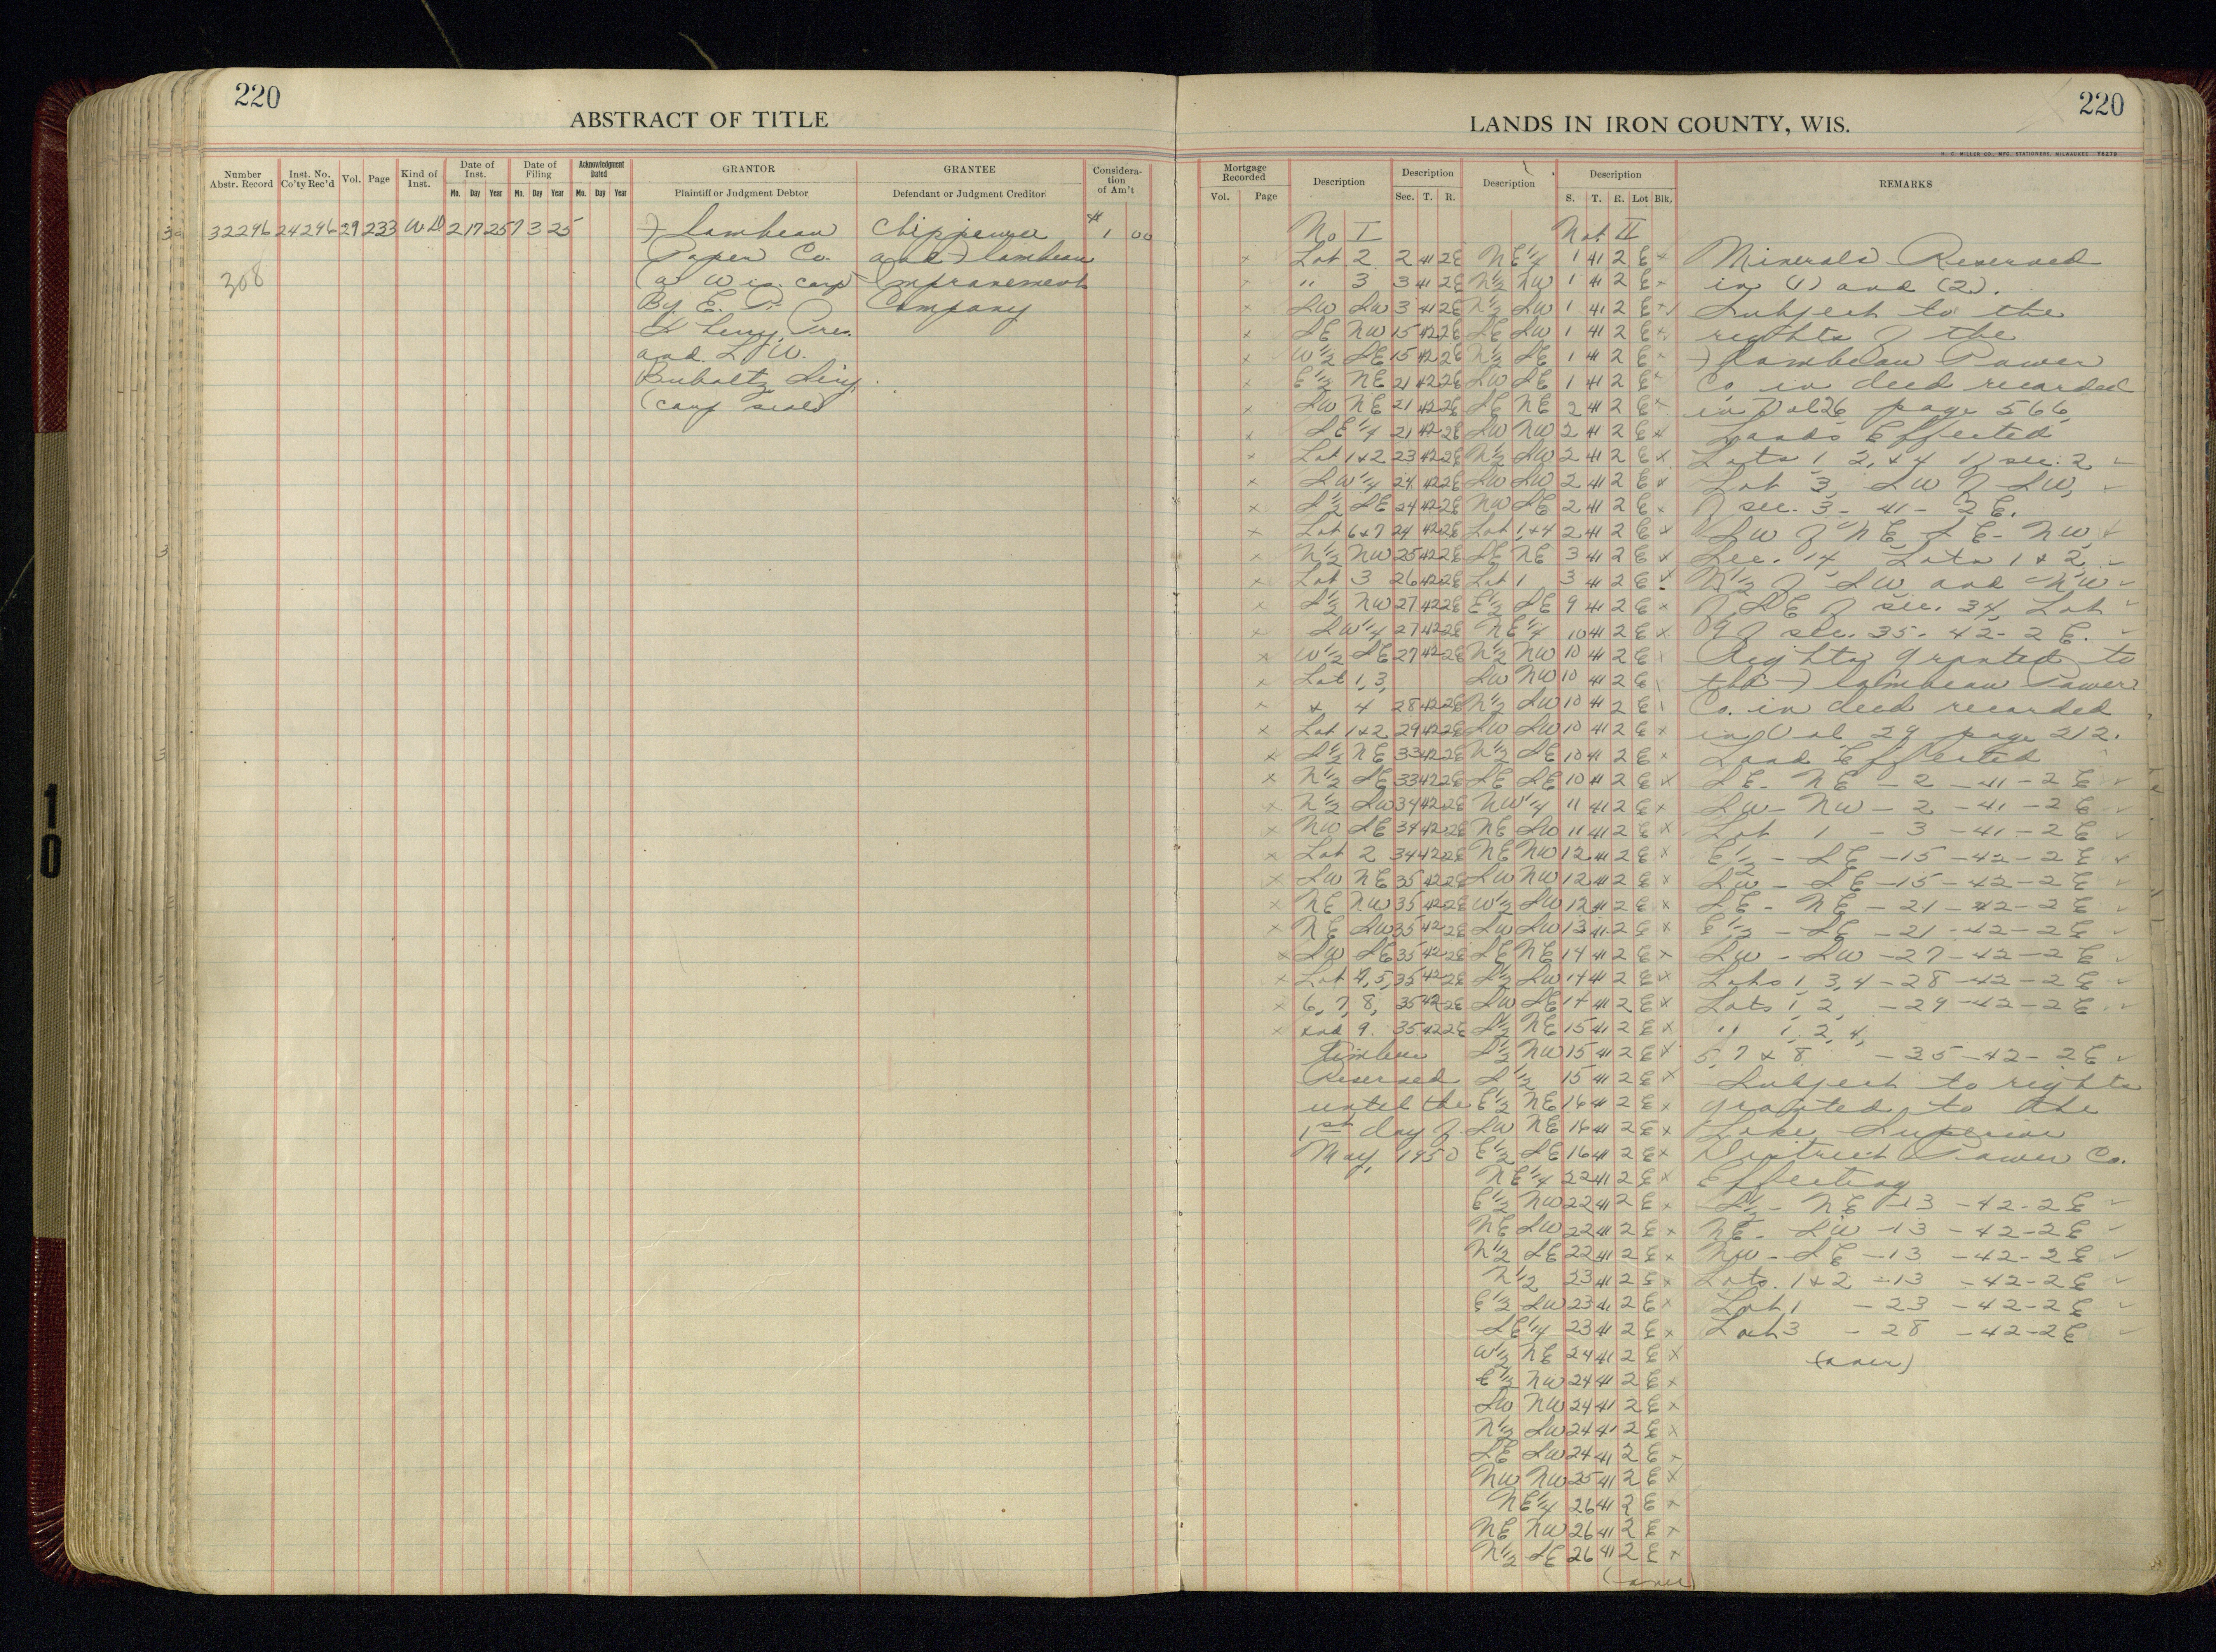 220
ABSTRACT OF TITLE
Number Abstr. Record
Inst. No. Co'ty Rec'd
Vol.
Page
Kind of Inst.
Date of Inst.
Mo. Day Year
Date of Filing
Mo. Day Year
Acknowledgment Dated
Mo. Day Year
GRANTOR
Plaintiff or Judgment Debtor
GRANTEE
Defendant or Judgment Creditor
Considera-
tion
of Am't
32296 24296 29 233 WD 2 17 25 7 3 25 Flambeau Chippewa $ 1 00
Paper Co. and Flambeau
308 (a Wis. corp) Improvement
By E. P. Company
Sherry, Pres.
and L. W.
Buboltz Secy.
(corp seal)
220
LANDS IN IRON COUNTY, WIS.
Mortgage Recorded
Vol. Page
Description
Description
Sec. T. R.
Description
Description
S. T. R. Lot Blk.
REMARKS
No I
Not II
x Lot 2 2 41 2E NE 1/4 1 41 2 E x Minerals Reserved
x " 3 3 41 2E N 1/2 NW 1 41 2 E x in (1) and (2).
x SW SW 3 41 2E N 1/2 SW 1 41 2 E x Subject to the
x SE NW 15 42 2E SE SW 1 41 2 E x rights of the
x W 1/2 SE 15 42 2E N 1/2 SE 1 41 2 E x Flambeau Power
x E 1/2 NE 21 42 2E SW SE 1 41 2 E x Co. in deed recorded
x SW NE 21 42 2E SE NE 2 41 2 E x in Vol 26 page 566
x SE 1/4 21 42 2E SW NW 2 41 2 E x Lands Effected
x Lot 1 & 2 23 42 2E N 1/2 SW 2 41 2 E x Lots 1, 2, & 4 of sec. 2
x SW 1/4 24 42 2E SW SW 2 41 2 E x Lot 3, SW of SW,
x S 1/2 SE 24 42 2E NW SE 2 41 2 E x of sec. 3 - 41 - 2 E.
x Lot 6 & 7 24 42 2E Lot 1, & 4 2 41 2 E x SW of NE, SE - NW,
x N 1/2 NW 25 42 2E SE NE 3 41 2 E x Sec. 14 Lots 1 & 2,
x Lot 3 26 42 2E Lot 1 3 41 2 E x N 1/2 of SW and NW
x S 1/2 NW 27 42 2E E 1/2 SE 9 41 2 E x of SE of sec. 34, Lot
x SW 1/4 27 42 2E NE 1/4 10 41 2 E x 9 of sec. 35 - 42 - 2 E.
x W 1/2 SE 27 42 2E N 1/2 NW 10 41 2 E Rights granted to
x Lot 1, 3, SW NW 10 41 2 E the Flambeau Power
x & 4 28 42 2E N 1/2 SW 10 41 2 E Co. in deed recorded
x Lot 1 & 2 29 42 2E SW SW 10 41 2 E x in Vol 29 page 212.
x S 1/2 NE 33 42 2E N 1/2 SE 10 41 2 E x Land Effected
x N 1/2 SE 33 42 2E SE SE 10 41 2 E x SE - NE - 2 - 41 - 2 E
x N 1/2 SW 34 42 2E NW 1/4 11 41 2 E x SW - NW - 2 - 41 - 2 E
x NW SE 34 42 2E NE SW 11 41 2 E x Lot 1 - 3 - 41 - 2 E
x Lot 2 34 42 2E NE NW 12 41 2 E x E 1/2 - SE - 15 - 42 - 2 E
x SW NE 35 42 2E SW NW 12 41 2 E x SW - SE - 15 - 42 - 2 E
x NE NW 35 42 2E W 1/2 SW 12 41 2 E x SE - NE - 21 - 42 - 2 E
x NE SW 35 42 2E SW SW 13 41 2 E x E 1/2 - SE - 21 - 42 - 2 E
x SW SE 35 42 2E SE NE 14 41 2 E x SW - SW - 27 - 42 - 2 E
x Lot 4, 5, 35 42 2E S 1/2 SW 14 41 2 E x Lots 1, 3, 4 - 28 - 42 - 2 E
x 6, 7, 8, 35 42 2E SW SE 14 41 2 E x Lots 1, 2, - 29 - 42 - 2 E
x and 9. 35 42 2E S 1/2 NE 15 41 2 E x " 1, 2, 4,
Timber S 1/2 NW 15 41 2 E x 5, 7 & 8 - 35 - 42 - 2 E
Reserved S 1/2 15 41 2 E x Subject to rights
until the E 1/2 NE 16 41 2 E x granted to the
1st day of SW NE 16 41 2 E x Lake Superior
May, 1950 E 1/2 SE 16 41 2 E x District Power Co.
NE 1/4 22 41 2 E x Effecting
E 1/2 NW 22 41 2 E x S 1/2 - NE - 13 - 42 - 2 E
NE SW 22 41 2 E x NE - SW - 13 - 42 - 2 E
N 1/2 SE 22 41 2 E x NW - SE - 13 - 42 - 2 E
N 1/2 23 41 2 E x Lots. 1 & 2 - 13 - 42 - 2 E
E 1/2 SW 23 41 2 E x Lot 1 - 23 - 42 - 2 E
SE 1/4 23 41 2 E x Lot 3 - 28 - 42 - 2 E
W 1/2 NE 24 41 2 E x (over)
E 1/2 NW 24 41 2 E x
SW NW 24 41 2 E x
N 1/2 SW 24 41 2 E x
SE SW 24 41 2 E x
NW NW 25 41 2 E x
NE 1/4 26 41 2 E x
NE NW 26 41 2 E x
N 1/2 SE 26 41 2 E x
(over)
10